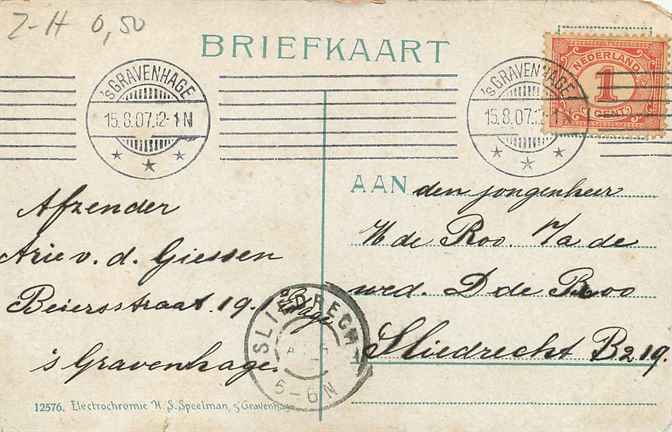 Z-H 0,50
BRIEFKAART
'sGRAVENHAGE
15.8.07.12-1N
'sGRAVENHAGE
15.8.07.12-1N
NEDERLAND
1
CENT
Afzender
Arie v. d. Giessen
Beiersstraat 19.
's Gravenhage.
AAN den jongenheer
H de Roo. N/a de
wed. D de Roo
Sliedrecht B219.
SLIEDRECHT
5-6N
12576. Electrochromie H. S. Speelman, 's Gravenhage